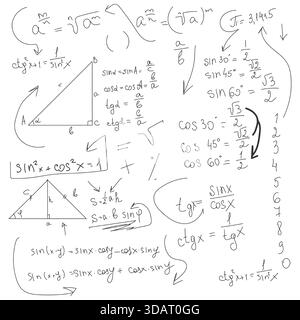 a^(m/n) = ⁿ√a^m
a^(m/n) = (ⁿ√a)^m
π=3,1415
ctg²x+1=1/sin²x
a/b
sin30°=1/2
sin45°=√2/2
sin60°=√3/2
B
a
A
α
b
C
sinα=a/c
cosα=b/c
tgα=a/b
ctgα=b/a
= √
+ %
cos30°=√3/2
cos45°=√2/2
cos60°=1/2
1
2
3
4
5
6
7
8
9
0
sin²x+cos²x=1
c
h
b
φ
a
S=½ah
S=a·b sinφ
tgx=sinx/cosx
ctgx=1/tgx
sin(x-y)=sinx·cosy-cosx·siny
sin(x+y)=sinx·cosy+cosx·siny
ctg²x+1=1/sin²x
dreamstime
Image ID: 3DAT0GG
www.alamy.com